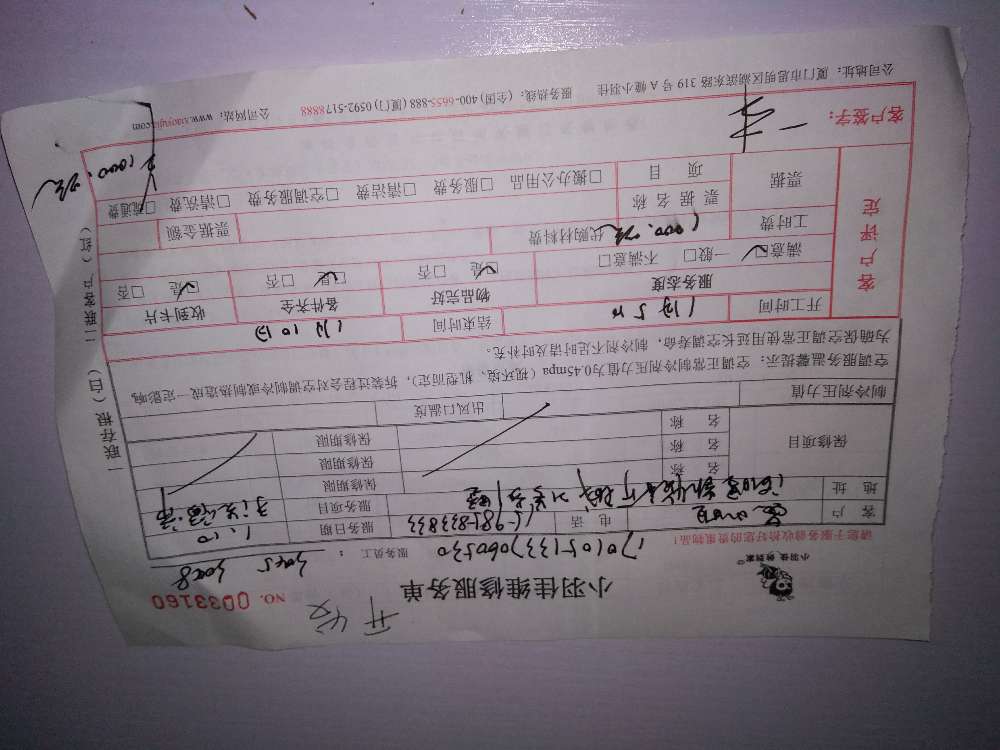 小羽佳 到到家®
小羽佳维修服务单
NO. 0033160
开发
请您于服务前收拾好您的贵重物品!
1701051337060530
服务员工: 3025 3028
客户
电话 15981-833833
服务日期 1.10
地址
服务项目
保修项目
名称 保修期限
名称 保修期限
名称 保修期限
制冷剂压力值 出风口温度
空调服务温馨提示: 空调正常制冷剂压力值为0.45mpa (视环境、机型而定), 拆装过程会对空调制冷或制热造成一定影响,
为确保空调正常使用延长空调寿命, 制冷剂不足时请及时补充。
客户评定
开工时间
结束时间
服务态度 物品完好 备件齐全 收到卡片
满意☑ 一般□ 不满意□ ☑是 □否 ☑是 □否 ☑是 □否
工时费 代购材料费
票据 票据名称 票据金额
项目 □搬办公用品 □服务费 □清洁费 □空调服务费 □清洗费 □疏通费
客户签字:
公司地址: 厦门市思明区湖滨东路 319 号 A 幢小羽佳 服务热线: (全国) 400-6655-888 (厦门) 0592-5178888 公司网站: www.xiaoyujia.com
一联存根 (白) 二联客户 (红)